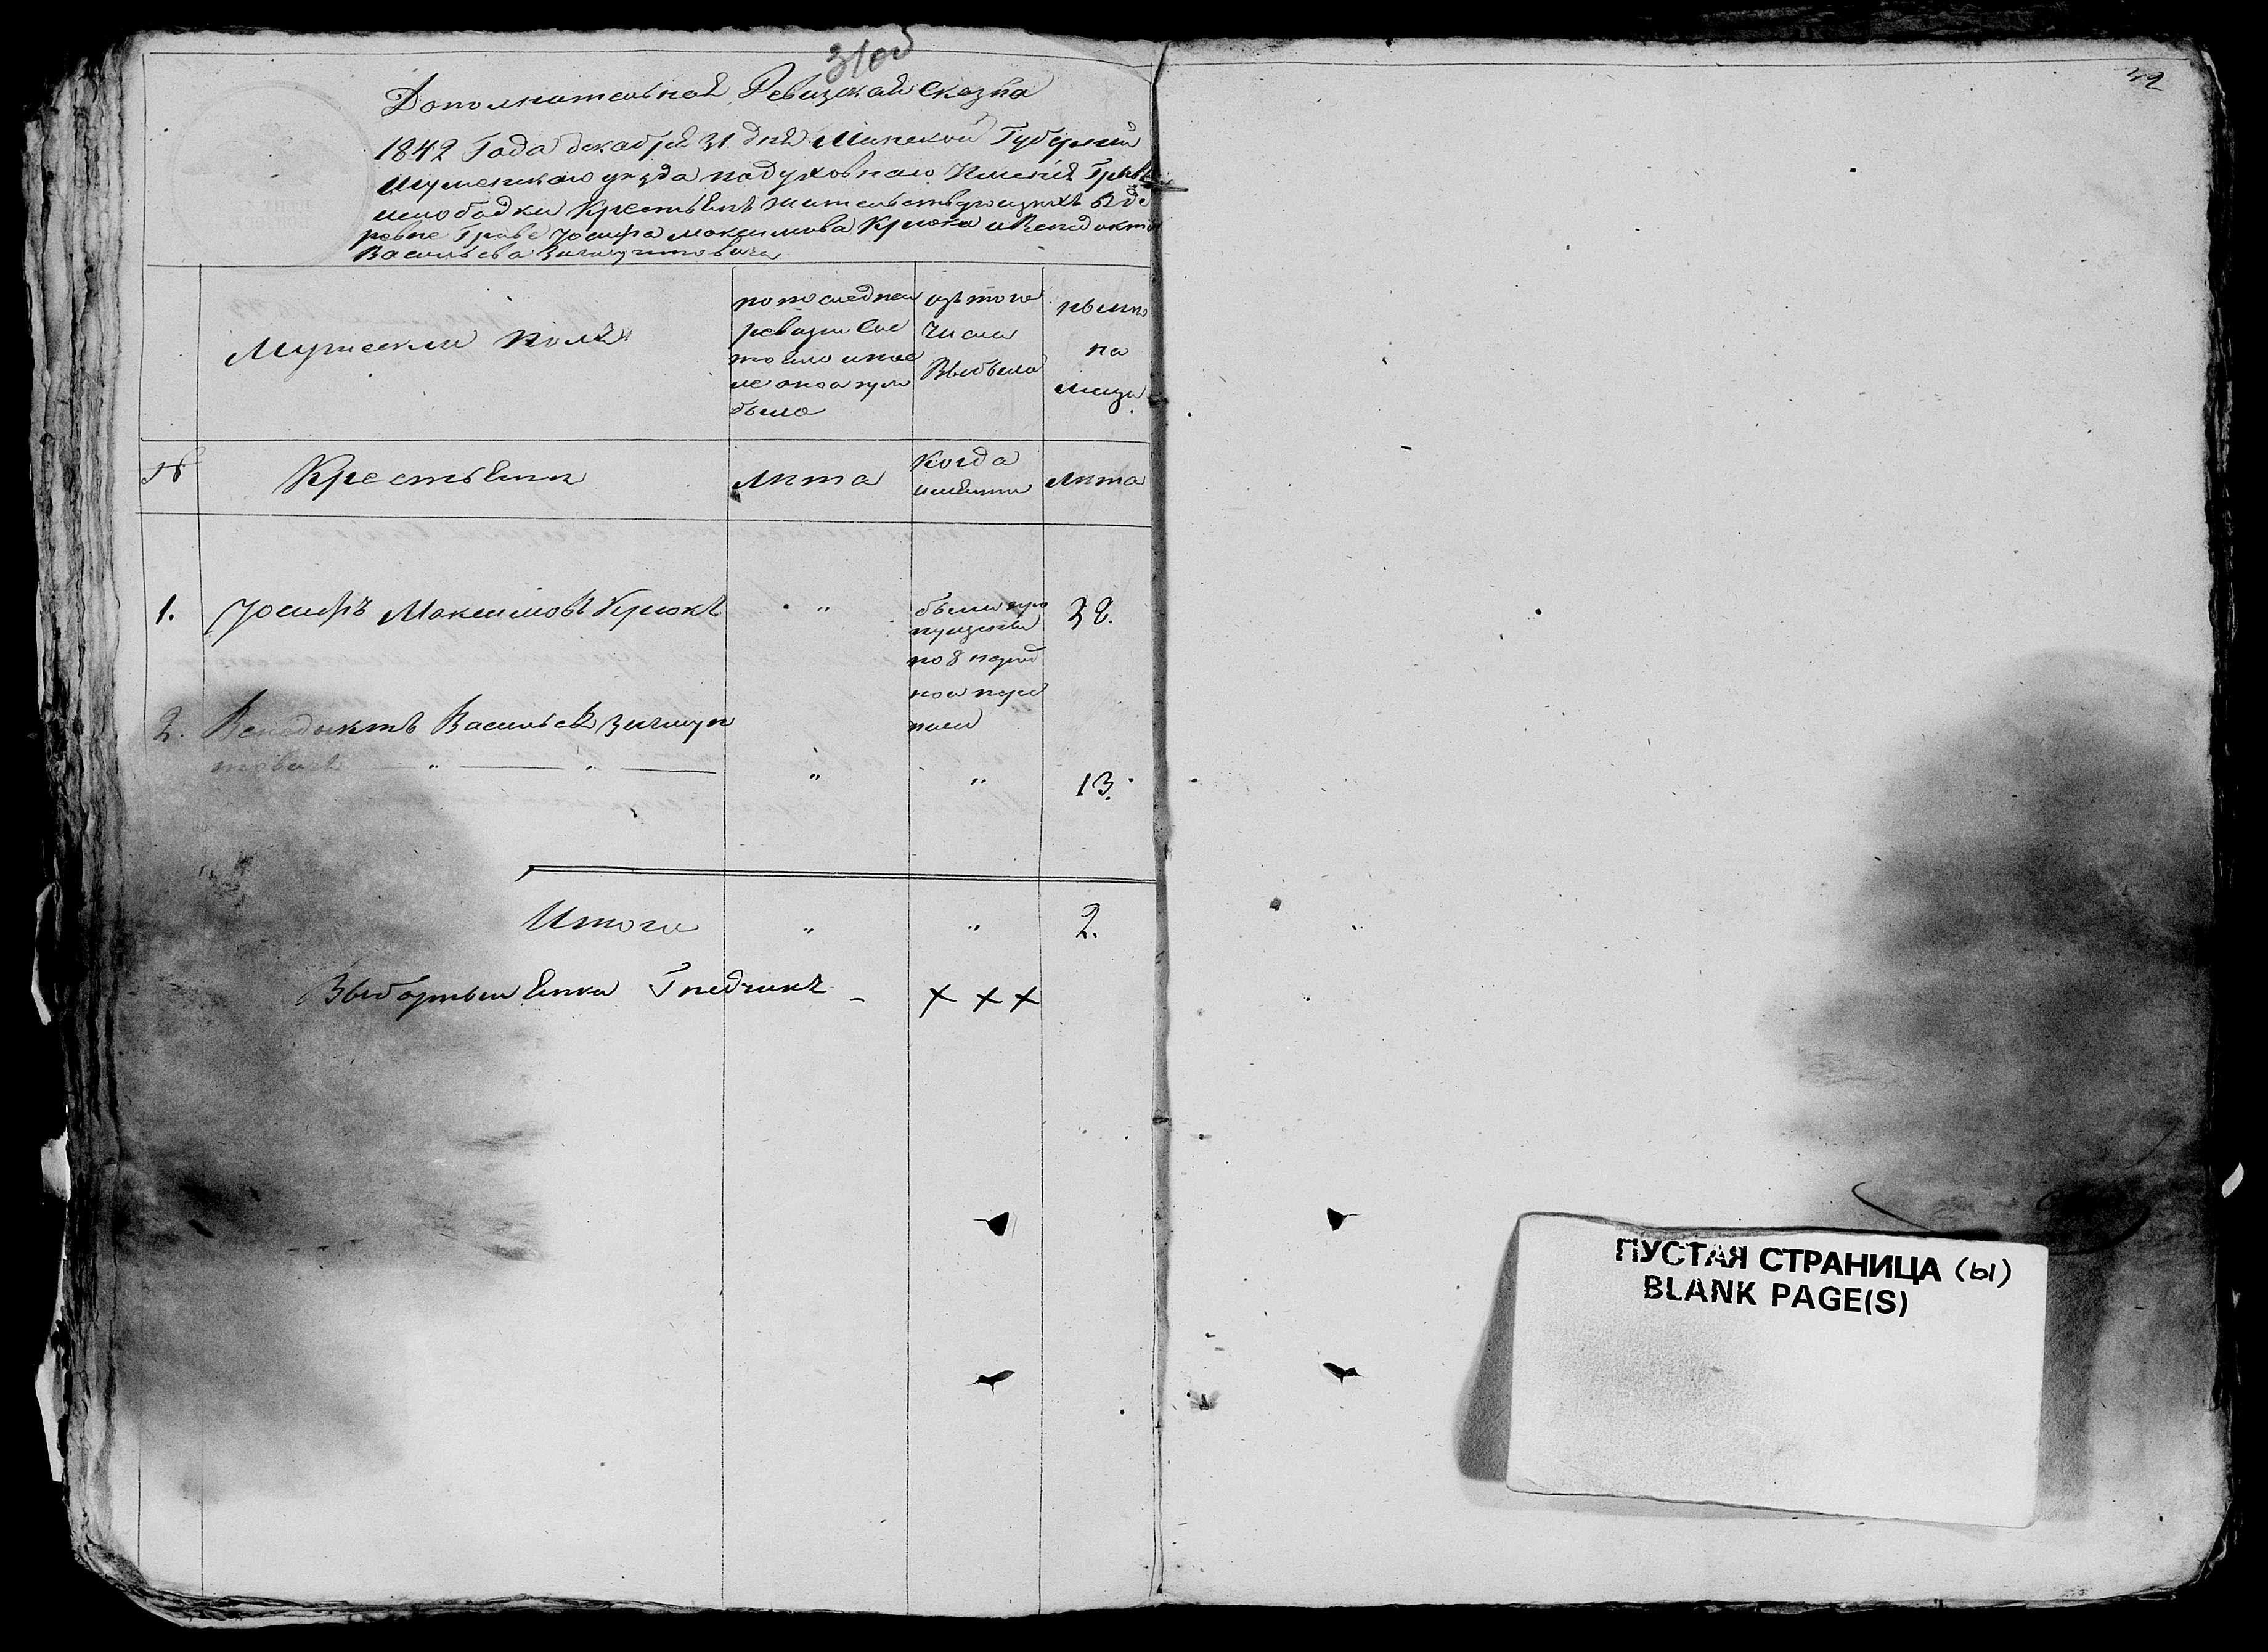 31об
Дополнительная Ревизская Сказка
1842 Года декабря 31 дня Минской Губернии
Игуменского уезда подуховного Имения Грив
слободки Крестьянъ жительствующихъ В де
ревне Гриве Јосифа Максимова Крюка и Венедыкта
Васильева
Мужеска полъ
по последней
ревизии Сос
тояло и пос
ле оной
было
изъ того
числа
Выбыло
ныне
на
лицо
№
Крестьяни
лета
Когда
имянно
лета
1.
Јосифъ Максимовъ Крюкъ
"
были про
пущены
по 8 народ
ной пере
писи
38.
2.
Венедыктъ Васильевъ Зигмун
товичъ " "
"
"
13.
Итого
"
"
2.
Гнедчикъ
+ + +
32
ПУСТАЯ СТРАНИЦА (ы)
BLANK PAGE(S)